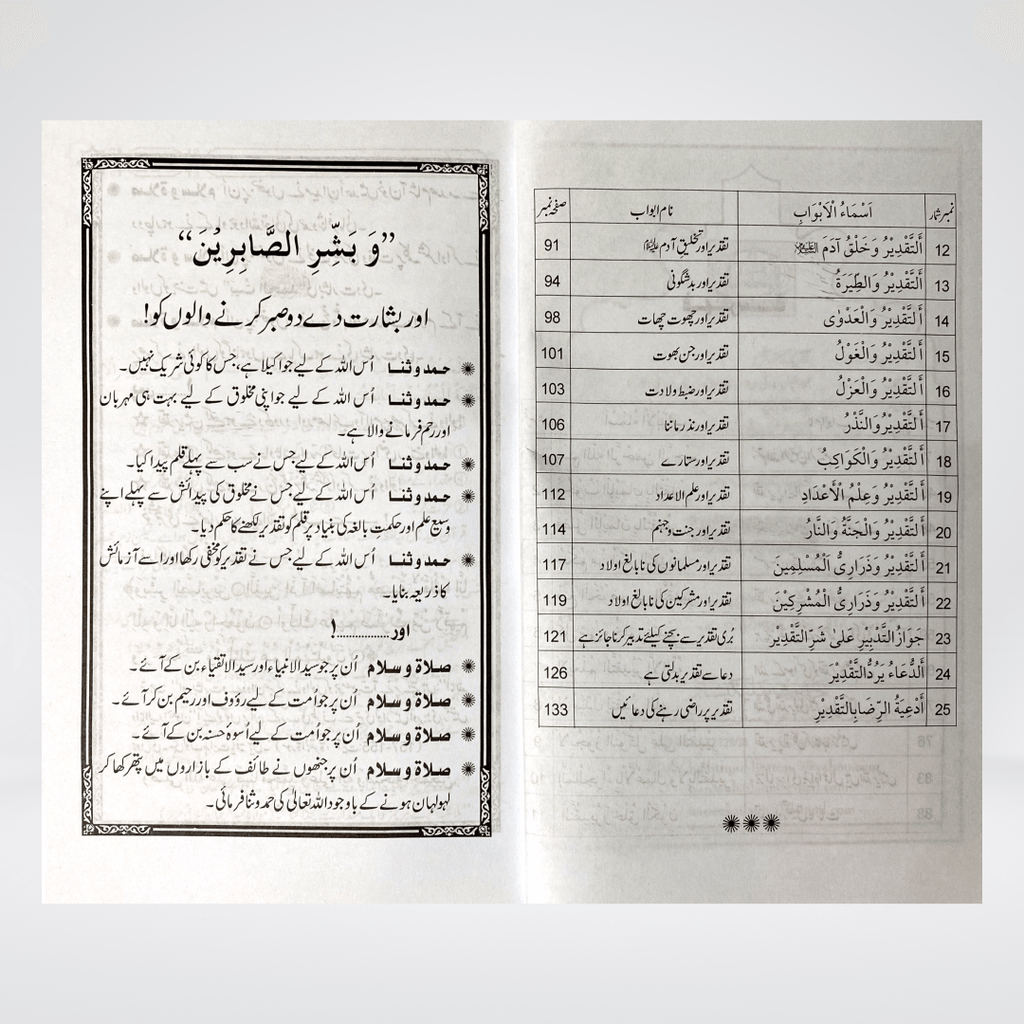 نمبر شمار اَسْمَاءُ الْاَبْوَابِ نام ابواب صفحہ نمبر
12 اَلتَّقْدِيْرُ وَخَلْقُ آدَمَ تقدیر اور تخلیقِ آدم 91
13 اَلتَّقْدِيْرُ وَالطِّيَرَةُ تقدیر اور بدشگونی 94
14 اَلتَّقْدِيْرُ وَالْعَدْوٰى تقدیر اور چھوت چھات 98
15 اَلتَّقْدِيْرُ وَالْغَوْلُ تقدیر اور جن بھوت 101
16 اَلتَّقْدِيْرُ وَالْعَزْلُ تقدیر اور ضبط ولادت 103
17 اَلتَّقْدِيْرُ وَالنَّذْرُ تقدیر اور نذر ماننا 106
18 اَلتَّقْدِيْرُ وَالْكَوَاكِبُ تقدیر اور ستارے 107
19 اَلتَّقْدِيْرُ وَعِلْمُ الْأَعْدَادِ تقدیر اور علم الاعداد 112
20 اَلتَّقْدِيْرُ وَالْجَنَّةُ وَالنَّارُ تقدیر اور جنت و جہنم 114
21 اَلتَّقْدِيْرُ وَذَرَارِىُّ الْمُسْلِمِيْنَ تقدیر اور مسلمانوں کی نابالغ اولاد 117
22 اَلتَّقْدِيْرُ وَذَرَارِىُّ الْمُشْرِكِيْنَ تقدیر اور مشرکین کی نابالغ اولاد 119
23 جَوَازُ التَّدْبِيْرِ عَلىٰ شَرِّ التَّقْدِيْرِ بُری تقدیر سے بچنے کیلئے تدبیر کرنا جائز ہے 121
24 اَلدُّعَاءُ يَرُدُّ التَّقْدِيْرَ دعا سے تقدیر بدلتی ہے 126
25 أَدْعِيَةُ الرِّضَا بِالتَّقْدِيْرِ تقدیر پر راضی رہنے کی دعائیں 133
”وَ بَشِّرِ الصَّابِرِيْنَ“
اور بشارت دے دو صبر کرنے والوں کو!
حمد و ثنا اُس اللہ کے لیے جو اکیلا ہے، جس کا کوئی شریک نہیں۔
حمد و ثنا اُس اللہ کے لیے جو اپنی مخلوق کے لیے بہت ہی مہربان
اور رحم فرمانے والا ہے۔
حمد و ثنا اُس اللہ کے لیے جس نے سب سے پہلے قلم پیدا کیا۔
حمد و ثنا اُس اللہ کے لیے جس نے مخلوق کی پیدائش سے پہلے اپنے
وسیع علم اور حکمتِ بالغہ کی بنیاد پر قلم کو تقدیر لکھنے کا حکم دیا۔
حمد و ثنا اُس اللہ کے لیے جس نے تقدیر کو مخفی رکھا اور اسے آزمائش
کا ذریعہ بنایا۔
اور ...............!
صلاة و سلام اُن پر جو سید الانبیاء اور سید الاتقیاء بن کے آئے۔
صلاة و سلام اُن پر جو اُمت کے لیے رؤوف اور رحیم بن کر آئے۔
صلاة و سلام اُن پر جو اُمت کے لیے اُسوۂ حسنہ بن کے آئے۔
صلاة و سلام اُن پر جنھوں نے طائف کے بازاروں میں پتھر کھا کر
لہولہان ہونے کے باوجود اللہ تعالیٰ کی حمد و ثنا فرمائی۔